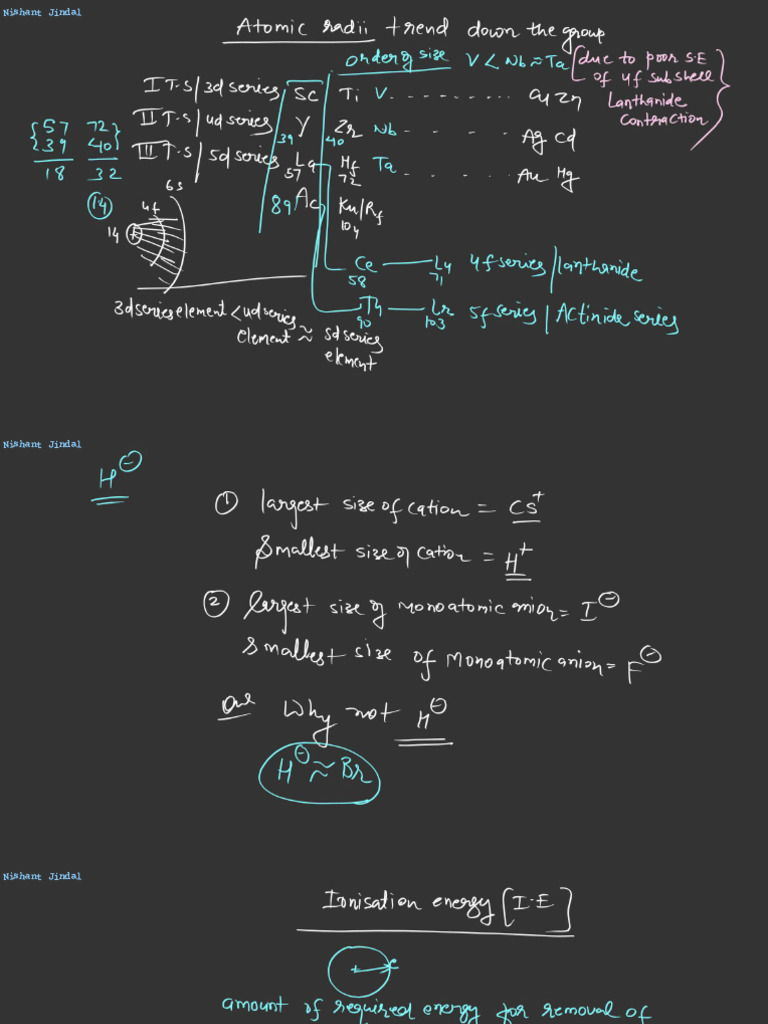 Nishant Jindal
Atomic radii trend down the group
order of size V < Nb ≈ Ta (due to poor S.E
of 4f subshell
Lanthanide
Contraction)
I T.S / 3d series Sc Ti V ......... Cu Zn
II T.S / 4d series Y Zr Nb ...... Ag Cd
39 40
III T.S / 5d series La Hf Ta ...... Au Hg
57 72
{57 72}
{39 40}
18 32
14
6s
4f
14
89 Ac Ku/Rf
104
Ce — Lu 4f series / lanthanide
58 71
Th — Lr 5f series / Actinide series
90 103
3d series element < 4d series
element ≈ 5d series
element
Nishant Jindal
H⊖
① largest size of cation = Cs+
Smallest size of cation = H+
② largest size of monoatomic anion = I⊖
Smallest size of monoatomic anion = F⊖
Que Why not H⊖
H⊖ ≈ Br
Nishant Jindal
Ionisation energy [I.E]
e
amount of required energy for removal of